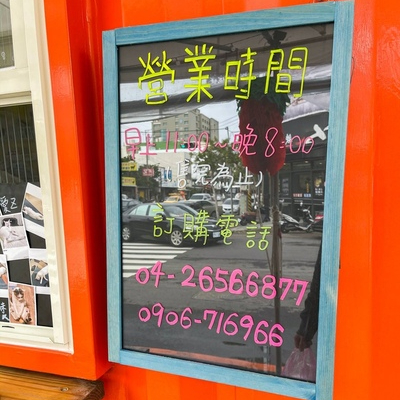 營業時間
早上11:00~晚8:00
(售完為止)
訂購電話
04-26566877
0906-716966